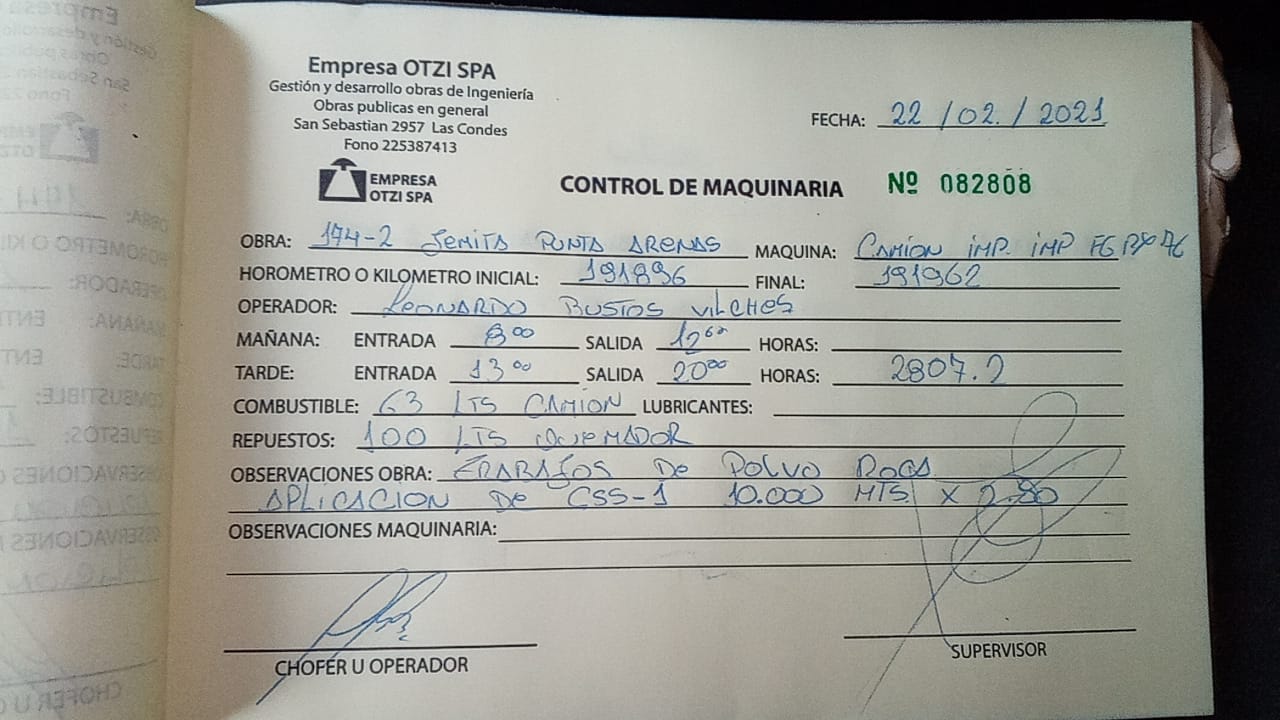 Empresa OTZI SPA
Gestión y desarrollo obras de Ingeniería
Obras publicas en general
San Sebastian 2957 Las Condes
Fono 225387413
EMPRESA
OTZI SPA
FECHA: 22 / 02. / 2021
CONTROL DE MAQUINARIA Nº 082808
OBRA: 174-2 Semita Punta Arenas MAQUINA: Camion imp. imp
HOROMETRO O KILOMETRO INICIAL: 191896 FINAL: 191962
OPERADOR: Leonardo Bustos Vilches
MAÑANA: ENTRADA 8 00 SALIDA 12 HORAS:
TARDE: ENTRADA 13 00 SALIDA 20 00 HORAS: 2807.2
COMBUSTIBLE: 63 LTS CAMION LUBRICANTES:
REPUESTOS: 100 LTS QUEMADOR
OBSERVACIONES OBRA: TRABAJOS DE POLVO ROCA
APLICACION DE CSS-1 10.000 MTS X 2.80
OBSERVACIONES MAQUINARIA:
CHOFER U OPERADOR
SUPERVISOR